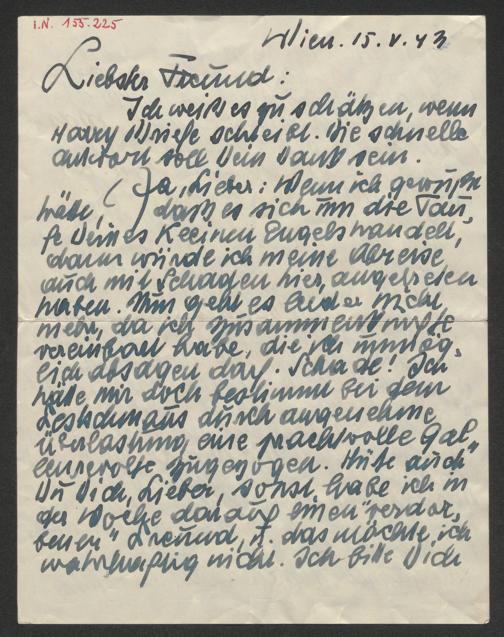 I.N. 155.225
Wien. 15. V. 43
Liebster Freund:
Ich weiß es zu schätzen, wenn
Harry Briefe schreibt. Die schnelle
Antwort soll Dein Dank sein.
Ja, Lieber: Wenn ich gewußt
hätte, daß es sich um die Tau-
fe Deines kleinen Engels handelt,
dann würde ich meine Abreise
auch mit Schaden hier, angetreten
haben. Nun geht es leider nicht
mehr, da ich Zusammenkünfte
vereinbart habe, die ich unmög-
lich absagen darf. Schade! Ich
hätte mir doch bestimmt bei dem
Festschmaus durch angenehme
Überlastung eine prachtvolle Gal-
lenrevolte zugezogen. Hüte auch
Du Dich, Lieber, sonst habe ich in
der Woche darauf einen "verdor-
benen" Freund, u. das möchte ich
wahrhaftig nicht. Ich bitte Dich